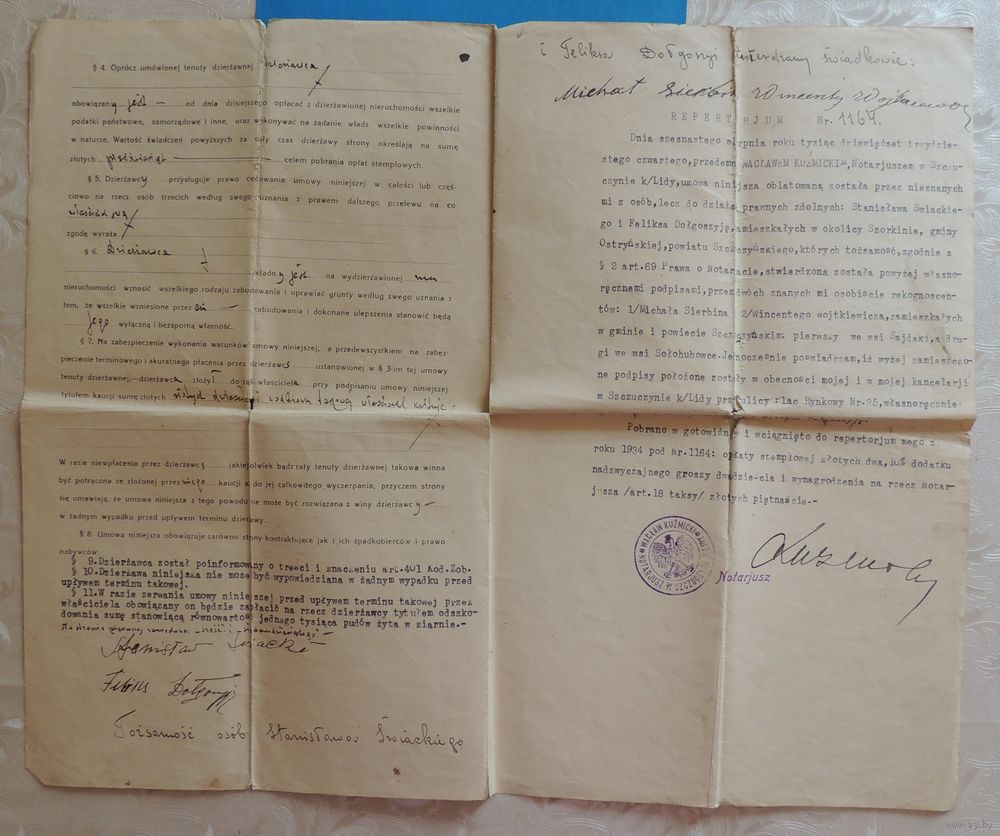 § 4. Oprócz umówionej tenuty dzierżawnej
obowiązany jest — od dnia dzisiejszego opłacać z dzierżawionej nieruchomości wszelkie
podatki państwowe, samorządowe i inne, oraz wykonywać na żądanie władz wszelkie powinności
w naturze. Wartość świadczeń powyższych za cały czas dzierżawy strony określają na sumę
złotych pięćdziesiąt — celem pobrania opłat stemplowych.
§ 5. Dzierżawcy przysługuje prawo cedowania umowy niniejszej w całości lub częś-
ciowo na rzecz osób trzecich według swego uznania z prawem dalszego przelewu na co
właściciel
zgodę wyraża
§ 6. Dzierżawca
władny jest na wydzierżawionej mu
nieruchomości wznosić wszelkiego rodzaju zabudowania i uprawiać grunty według swego uznania z
tem, że wszelkie wzniesione przez zabudowania i dokonane ulepszenia stanowić będą
jego wyłączną i bezsporną własność.
§ 7. Na zabezpieczenie wykonania warunków umowy niniejszej, a przedewszystkiem na zabez-
pieczenie terminowego i akuratnego płacenia przez dzierżawcę ustanowionej w § 3-im tej umowy
tenuty dzierżawnej,—dzierżawca złożył do rąk właściciela przy podpisywaniu umowy niniejszej
tytułem kaucji sumę złotych
W razie niewpłacenia przez dzierżawcę jakiejkolwiek bądź raty tenuty dzierżawnej takowa winna
być potrącona ze złożonej przez niego kaucji aż do jej całkowitego wyczerpania, przyczem strony
się umawiają, że umowa niniejsza z tego powodu nie może być rozwiązana z winy dzierżawcy —
w żadnym wypadku przed upływem terminu dzierżawy.
§ 8 Umowa niniejsza obowiązuje zarówno strony kontraktujące jak i ich spadkobierców i prawo
nabywców
§ 9.Dzierżawca został poinformowany o treści i znaczeniu art.401 Kod.Zob.
§ 10.Dzierżawa niniejsza nie może być wypowiedziana w żadnym wypadku przed
upływem terminu takowej.
§ 11.W razie zerwania umowy niniejszej przed upływem terminu takowej przez
właściciela obowiązany on będzie zapłacić na rzecz dzierżawcy tytułem odszko-
dowania sumę stanowiącą równowartość jednego tysiąca pudów żyta w ziarnie.-
Stanisław Świacki
Feliks Dołgoszyj
Tożsamość osób Stanisława Świackiego
i Feliksa Dołgoszyj stwierdzamy świadkowie:
Michał Sierbin Wincenty Wojtkiewicz
REPERTORJUM Nr. 1164.
Dnia szesnastego sierpnia roku tysiąc dziewięćset trzydzie-
stego czwartego,przedemną WACŁAWEM KUŹMICKIM,Notarjuszem w Szczu-
czynie k/Lidy,umowa niniejsza oblatowaną została przez nieznanych
mi z osób,lecz do działań prawnych zdolnych: Stanisława Świackie-
go i Feliksa Dołgoszyję,zamieszkałych w okolicy Szorkinie, gminy
Ostryńskiej,powiatu Szczuczyńskiego,których tożsamość,zgodnie z
§ 2 art.69 Prawa o Notarjacie,stwierdzona została powyżej własno-
ręcznemi podpisami,przez dwóch znanych mi osobiście rekognoscen-
tów: 1/Michała Sierbina i 2/Wincentego wojtkiewicza,zamieszkałych
w gminie i powiecie Szczuczyńskim: pierwszy we wsi Sajdaki,a dru-
gi we wsi Sołohubowce.Jednocześnie poświadczam,iż wyżej zamieszczo-
ne podpisy położone zostały w obecności mojej i w mojej kancelarji
w Szczuczynie k/Lidy przy ulicy Plac Rynkowy Nr.25,własnoręcznie
Pobrano w gotowiźnie i wciągnięto do repertorjum mego z
roku 1934 pod Nr.1164: opłaty stemplowej złotych dwa,10% dodatku
nadzwyczajnego groszy dwadzieścia i wynagrodzenia na rzecz Notar-
jusza /art.18 taksy/ złotych piętnaście.-
WACŁAW KUŹMICKI
NOTARJUSZ W SZCZUCZYNIE
Notarjusz
www.ay.by